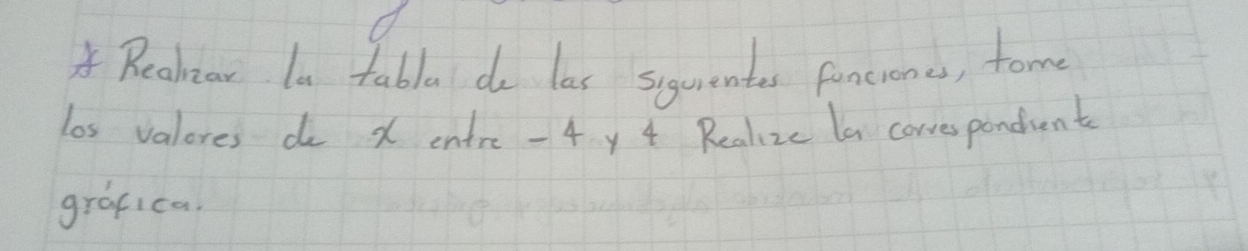 * Realizar la tabla de las siguientes funciones, tome
los valores de x entre -4 y 4 Realize la correspondiente
gráfica.